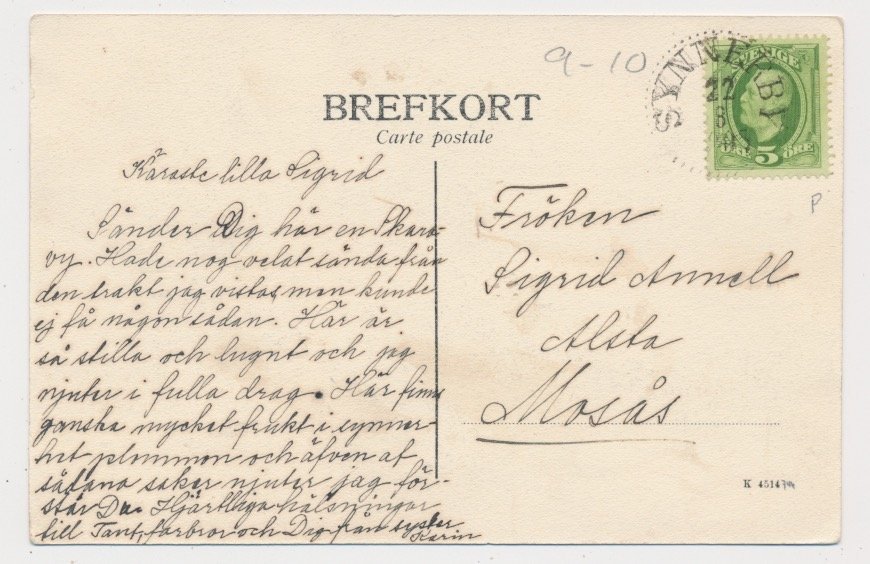 9-10
SYNNERBY
22
8
SVERIGE
5 ÖRE
BREFKORT
Carte postale
Käraste lilla Sigrid
Sänder Dig här en Skara-
vy. Hade nog velat sända från
den trakt jag vistas, men kunde
ej få någon sådan. Här är
så stilla och lugnt och jag
njuter i fulla drag. Här finns
ganska mycket frukt i synner-
het plommon och äfven af
sådana saker njuter jag för-
står Du. Hjärtliga hälsningar
till Tant, farbror och Dig från syster
Karin
Fröken
Sigrid Annell
Alsta
Mosås
K 4514
P